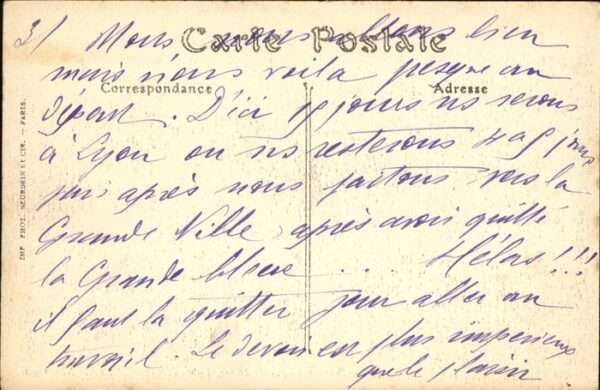 3/ Nous nous bien
Carte Postale
mais nous voilà presque au
Correspondance
Adresse
départ. D'ici 15 jours ns serons
à Lyon ou ns resterons 4 a 5 jours
puis après nous partons vers la
Grande Ville après avoir quitté
la Grande bleue ... Hélas!!!
il faut la quitter pour aller au
travail. Le devoir est plus impérieux
que le plaisir
IMP. PHOT. NEURDEIN ET CIE. — PARIS.